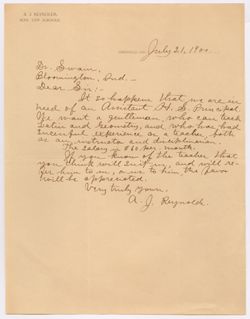 A. J. REYNOLDS,
SUPT. CITY SCHOOLS
July 21, 1900
Dr. Swain,
Bloomington, Ind. –
Dear Sir: –
It so happens that we are in
need of an Assistant H. S. Principal.
We want a gentleman, who can teach
Latin and Geometry, and who has had
successful experience as a teacher, both
as an instructor and disciplinarian.
The salary is $60 per month.
If you know of the teacher that
you think will suit us, and will re-
fer him to us, or us to him the favor
will be appreciated.
Very truly yours,
A. J. Reynolds